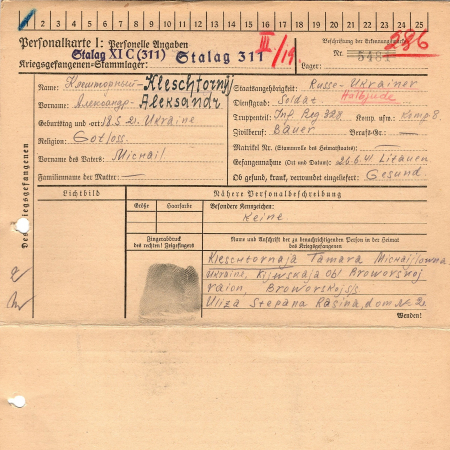 1 2 3 4 5 6 7 8 9 10 11 12 13 14 15 16 17 18 19 20 21 22 23 24 25
Personalkarte I: Personelle Angaben
Stalag XI C (311) Stalag 311 III/19
Kriegsgefangenen-Stammlager:
Beschriftung der Erkennungsmarke
Nr. 5481 286
Lager:
Des Kriegsgefangenen
Name: Клешторный- Kleschtornij
Vorname: Александр- Aleksandr
Geburtstag und -ort: 18.5.21. Ukraine
Religion: Gotloss.
Vorname des Vaters: Michail
Familienname der Mutter: —
Staatsangehörigkeit: Russe- Ukrainer
Halbjude
Dienstgrad: Soldat
Truppenteil: Inf. Reg. 328 Komp. usw.: Komp 8.
Zivilberuf: Bauer Berufs-Gr.: —
Matrikel Nr. (Stammrolle des Heimatstaates): —
Gefangennahme (Ort und Datum): 26.6.41 Litauen
Ob gesund, krank, verwundet eingeliefert: Gesund.
Lichtbild
Nähere Personalbeschreibung
Größe
Haarfarbe
Besondere Kennzeichen:
Keine
Fingerabdruck
des rechten! Zeigefinger!
Name und Anschrift der zu benachrichtigenden Person in der Heimat
des Kriegsgefangenen:
Kleschtornaja Tamara Michajlowna
Ukraine, Kijwskaja Obl Broworskoj
raion, Broworskoj s/s
Uliza Stepana Rasina, dom № 2
Wenden!